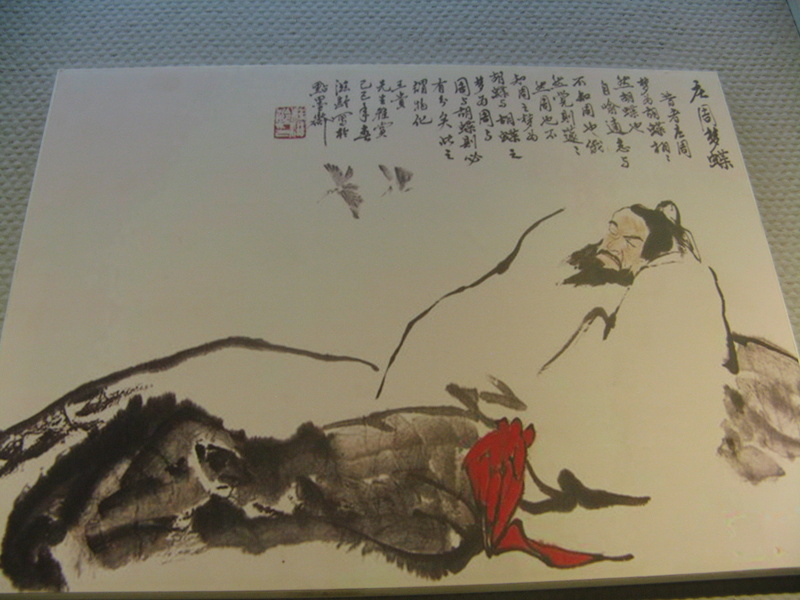 庄周梦蝶
昔者庄周
梦为胡蝶栩〻
然胡蝶也
自喻适志与
不知周也俄
然觉则蘧〻
然周也不
知周之梦为
胡蝶与胡蝶之
梦为周与
周与胡蝶则必
有分矣此之
谓物化
王贵
先生雅赏
己巳年春
写於